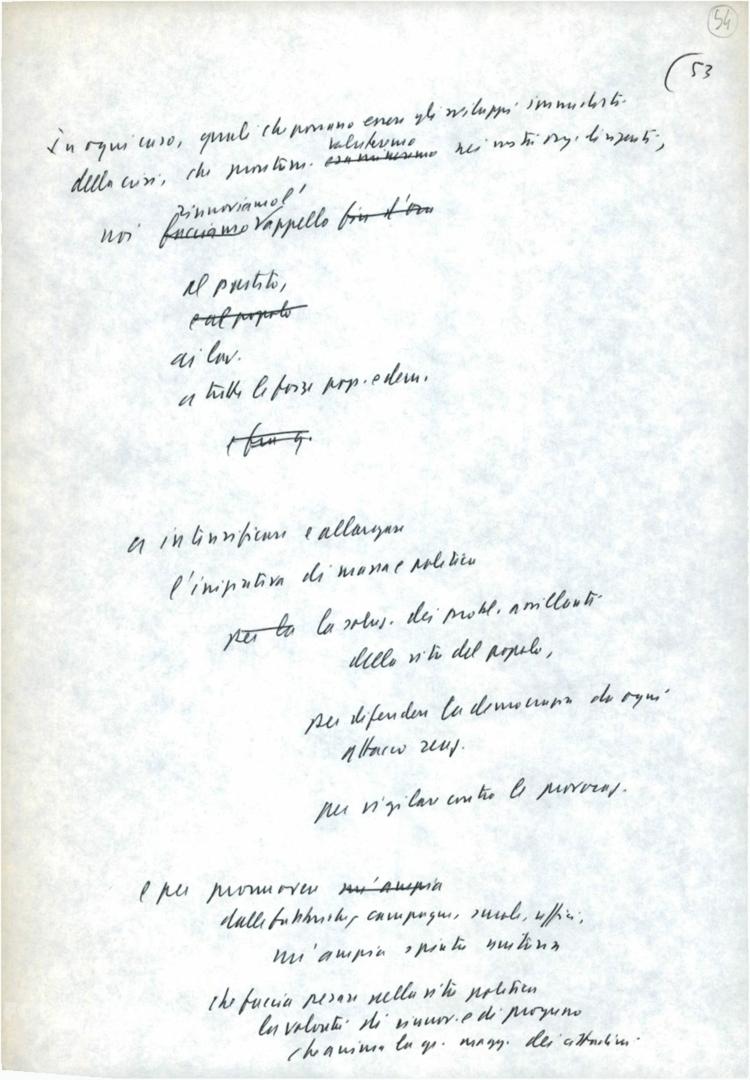 54
(53
In ogni caso, quali che possano essere gli sviluppi immediati
della crisi, che prontam. valuteremo esamineremo nei nostri org. dirigenti,
noi rinnoviamo l' facciamo appello fin d'ora
al partito,
e al popolo
ai lav.
a tutte le forze pop. e dem.
e fin q.
a intensificare e allargare
l'iniziativa di massa e politica
per la la soluz. dei probl. assillanti
della vita del popolo,
per difendere la democrazia da ogni
attacco reaz.
per vigilare contro le provocaz.
e per promuovere un'ampia
dalle fabbriche, campagne, scuole, uffici,
un'ampia spinta unitaria
che faccia pesare nella vita politica
la volontà di rinnov. e di progresso
che anima la gr. magg. dei cittadini.